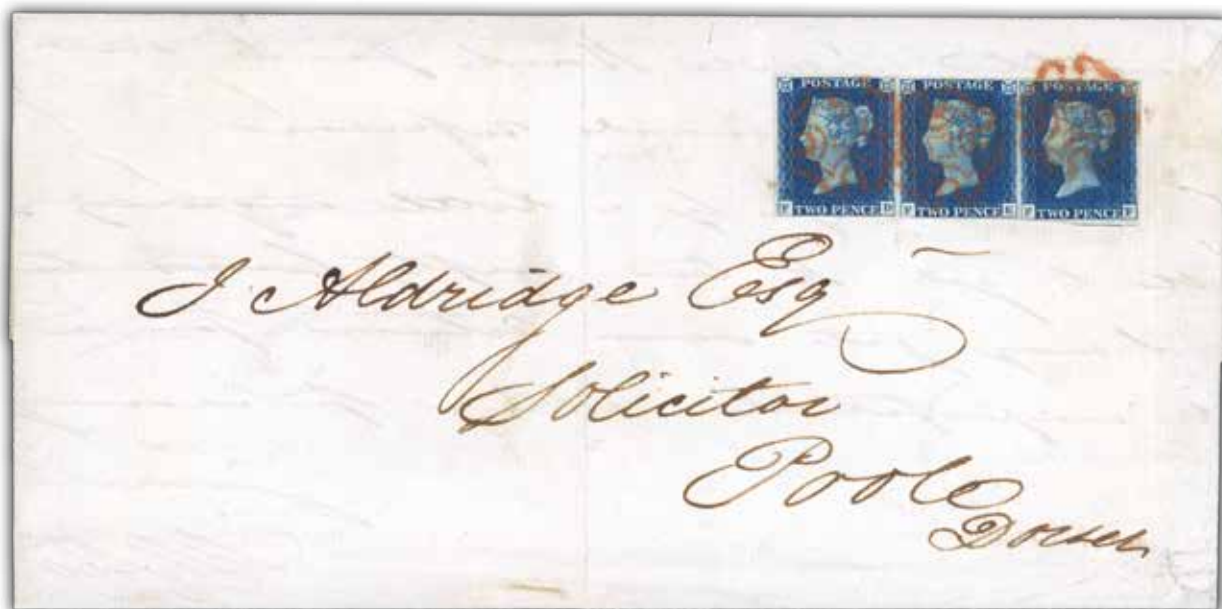 POSTAGE POSTAGE POSTAGE
TWO PENCE TWO PENCE TWO PENCE
J Aldridge Esq
Solicitor
Poole
Dorset